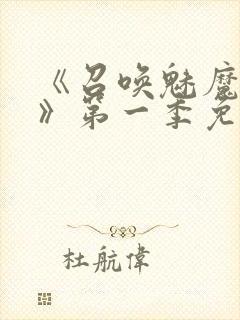 《召唤魅魔
》第一季免
杜航偉